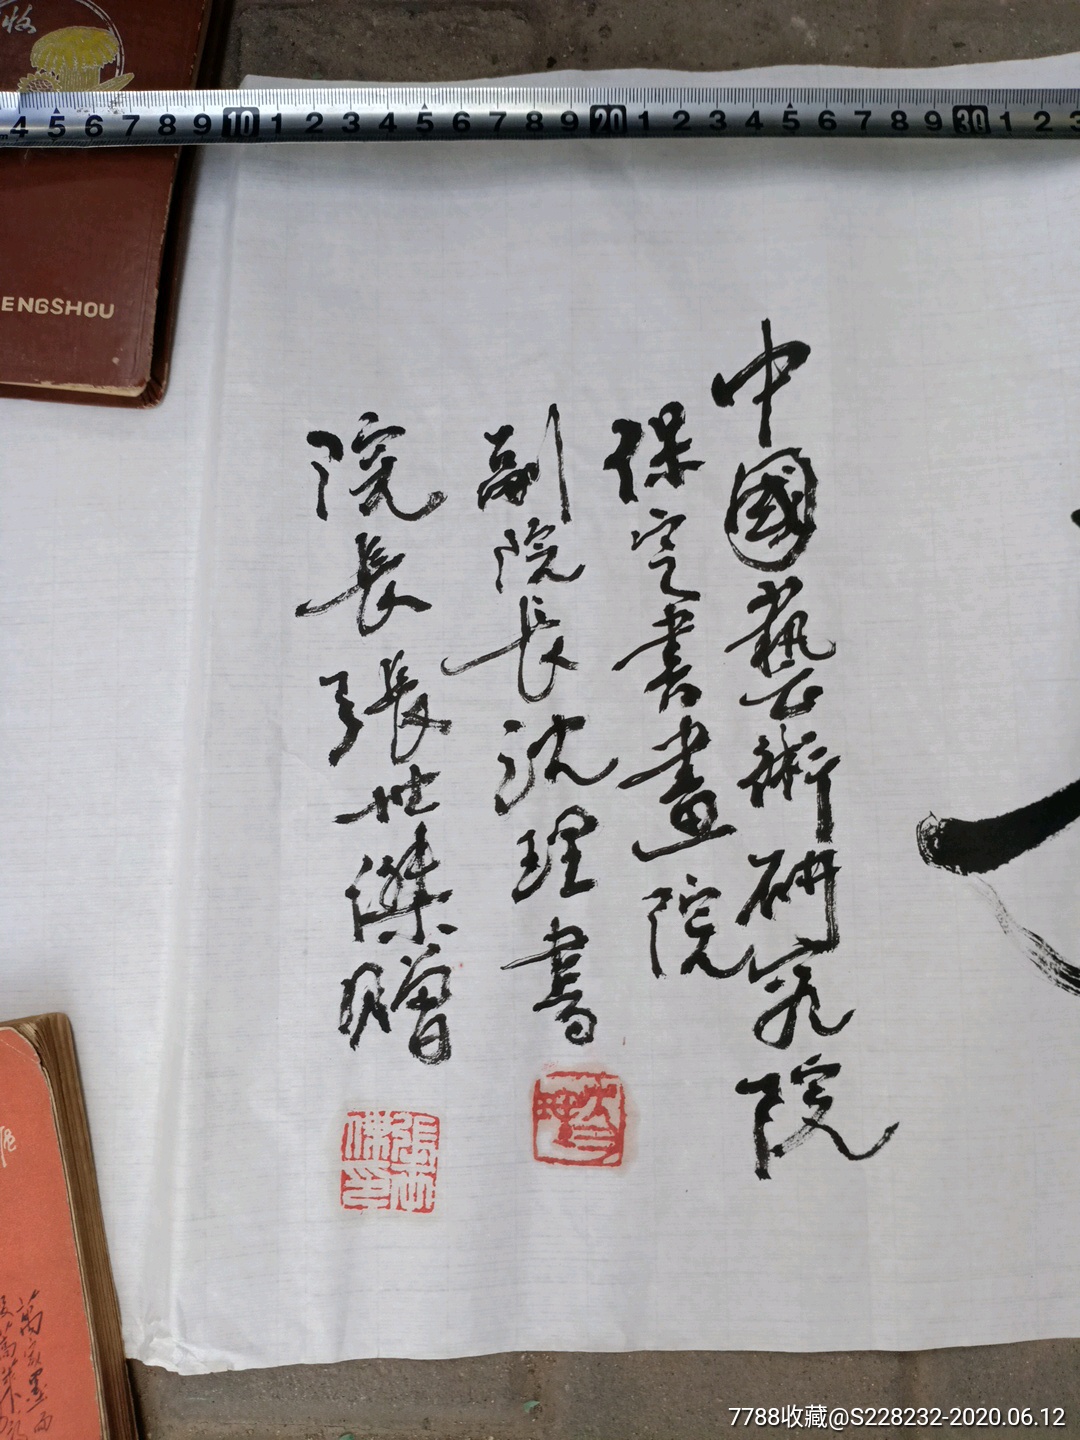 4 5 6 7 8 9 10 1 2 3 4 5 6 7 8 9 20 1 2 3 4 5 6 7 8 9 30 1 2 3
ENGSHOU
中國藝術研究院
保定書畫院
副院長沈理書
院長張世傑贈
張世傑印
7788收藏@S228232-2020.06.12